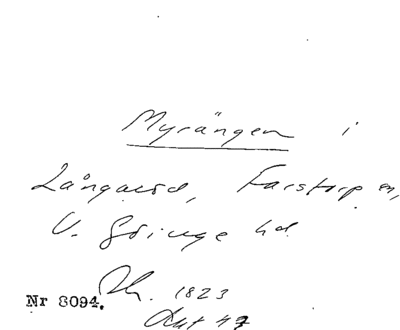 Myrängen i
Långaröd, Farstorp sn,
V. Göinge hd
Dh. 1823
Nr 8094.
Akt 47